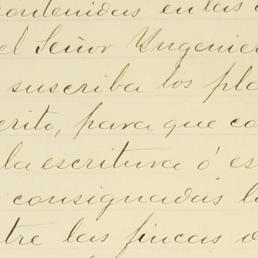 contenidas en las
el Señor Yngenie
suscriba los pla
erito, para que co
la escritura ó es
consignadas l
tre las fincas d